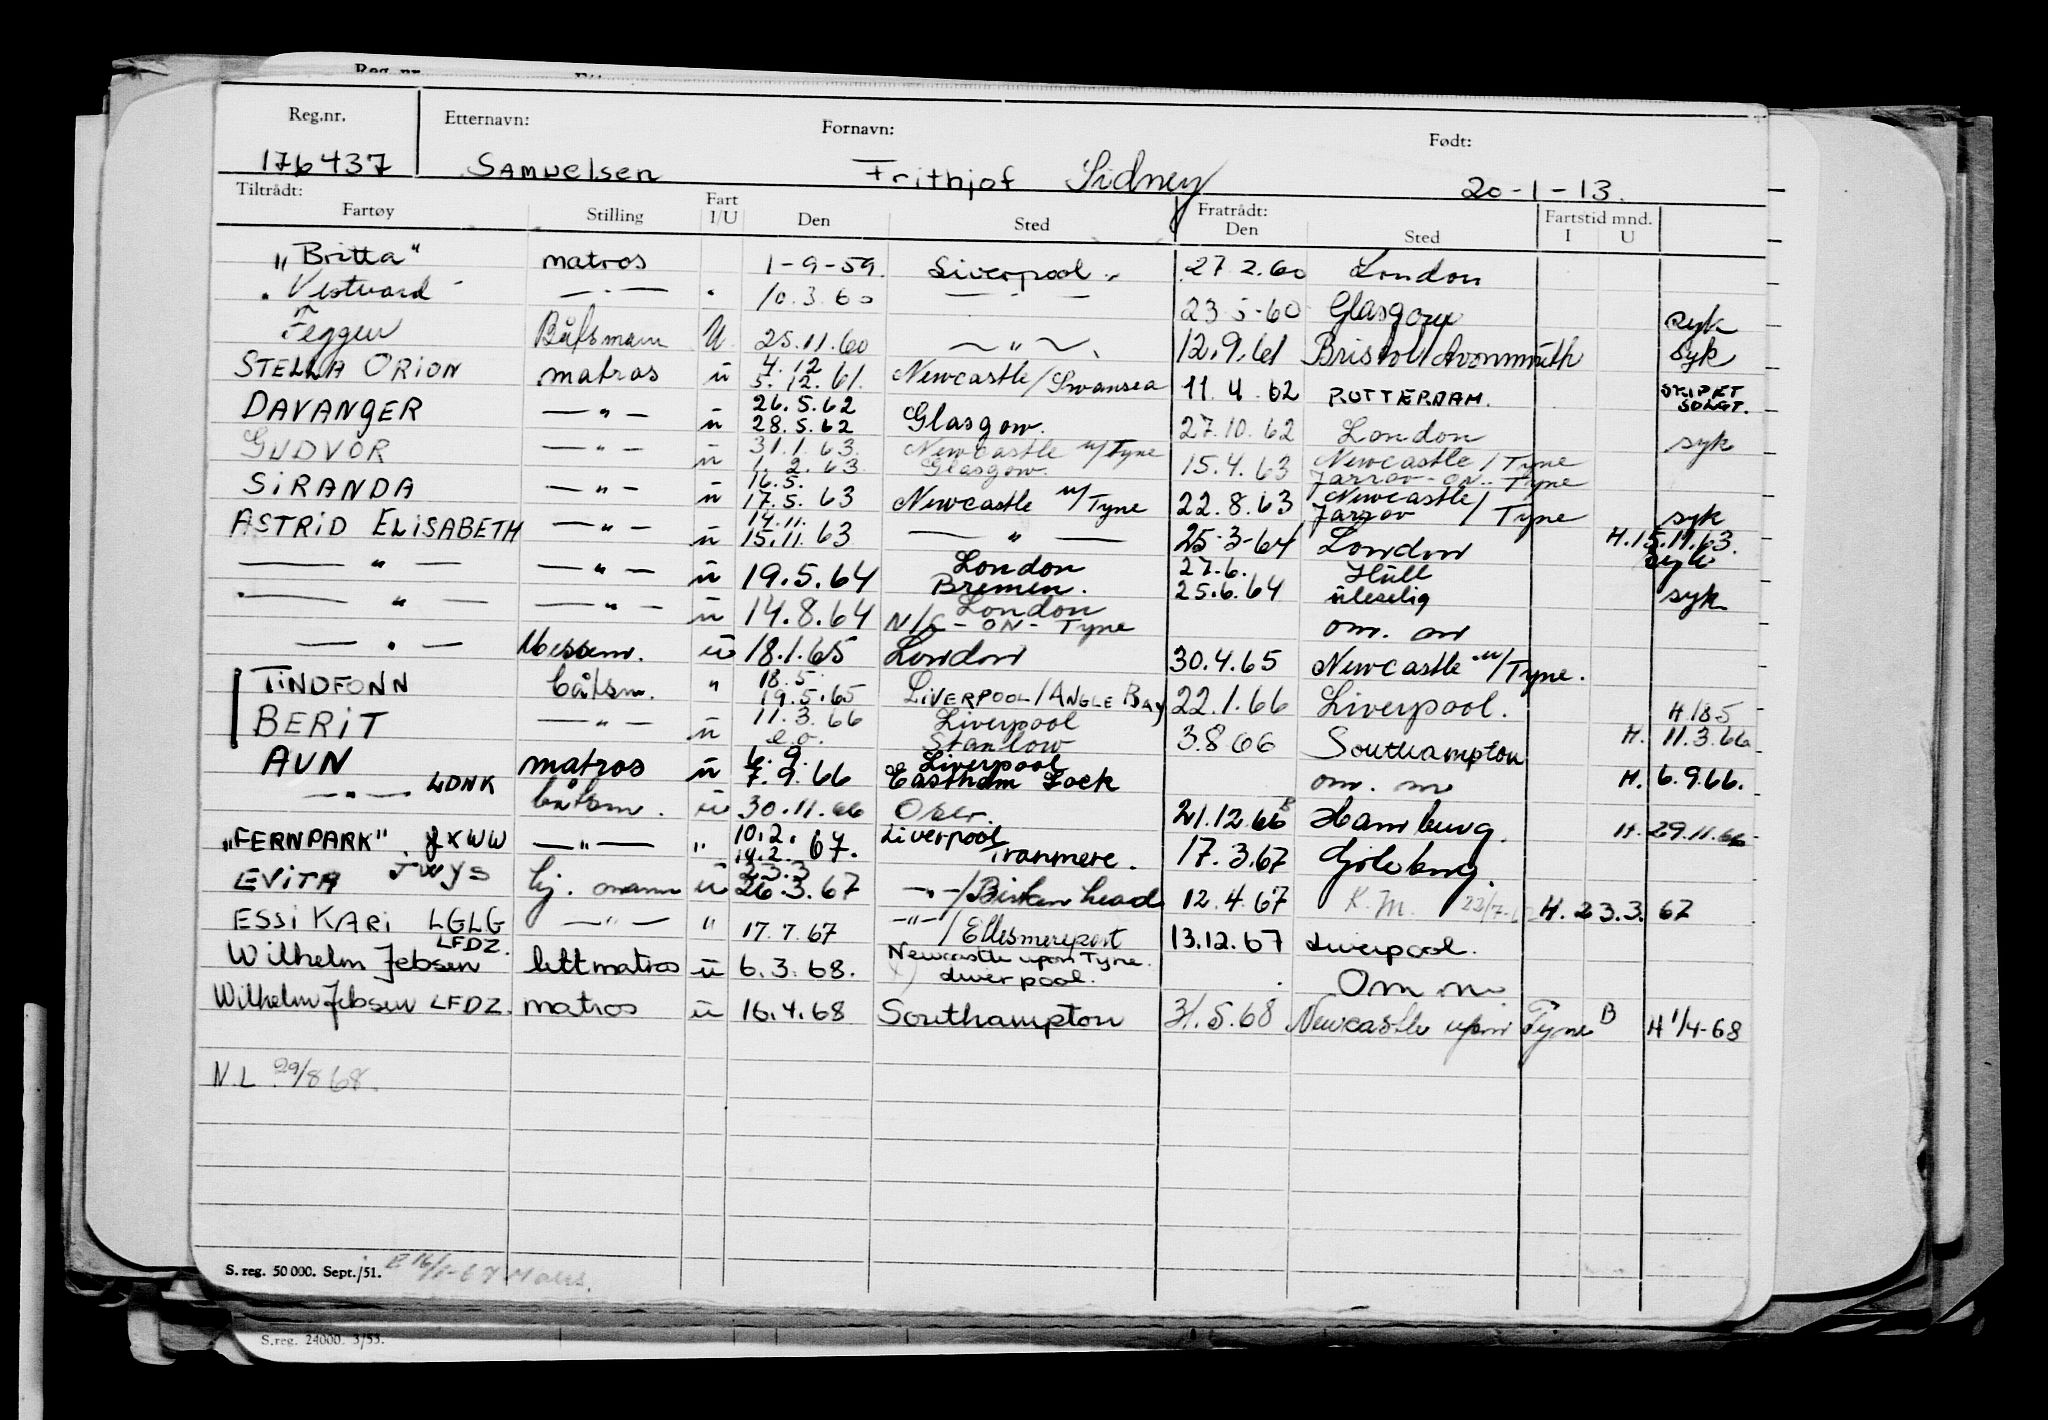 Reg.nr.
Etternavn:
Fornavn:
Født:
176437 Samuelsen Frithjof Sidney 20-1-13.
Tiltrådt:
Fratrådt:
Fartøy Stilling Fart I/U Den Sted Den Sted Fartstid mnd. I U
"Britta" matros 1-9-59. Liverpool 27.2.60 London
Vestvard — " — 10.3.60 — " — 23-5-60 Glasgow syk
Feggen Båtsmann U 25.11.60 — " — 12.9.61 Bristol/Avonmouth syk
STELLA ORION matros u 4.12 5.12.61. Newcastle/Swansea 11.4.62 ROTTERDAM. SKIPET SOLGT.
DAVANGER — " — u 26.5.62 28.5.62 Glasgow. 27.10.62 London syk
GUDVOR — " — u 31.1.63. 1.2.63 Newcastle u/Tyne Glasgow. 15.4.63 Newcastle/Tyne Jarrov-on-Tyne
SIRANDA — " — u 16.5. 17.5.63 Newcastle u/Tyne 22.8.63 Newcastle/Jarrov / Tyne syk
ASTRID ELISABETH — " — u 14.11. 15.11.63 — " — 25-3-64 London H.15.11.63. syk
— " — — " — u 19.5.64 London Bremen. 27.6. 25.6.64 Hull uleselig syk
— " — — " — u 14.8.64 London N/C-ON-Tyne om. m
— " — Messem. u 18.1.65 London 30.4.65 Newcastle u/Tyne.
TINDFONN båtsm. " 18.5. 19.5.65 LIVERPOOL/ANGLE BAY 22.1.66 Liverpool. H.18.5
BERIT — " — u 11.3.66 e.o. Liverpool Stanlow 3.8.66 Southampton H. 11.3.66
AUN matros u 6.9. 7.9.66 Liverpool Eastham Lock om. m H. 6.9.66.
— " — LDNK båtsm. u 30.11.66 21.12.66 B Hamburg. H. 29.11.66
"FERNPARK". JXWW — " — " 10.2. 14.2. 67. Liverpool Tranmere. 17.3.67 Gøteborg.
EVITA JWYS u 23.3 26.3.67 — " —/Birkenhead 12.4.67 K.M. H. 23.3.67
ESSI KARI LGLG — " — " 17.7.67 — " —/Ellesmereport 13.12.67 Liverpool.
Wilhelm Jebsen LFDZ. lettmatros u 6.3.68. Newcastle upon Tyne. Liverpool. Om m.
Wilhelm Jebsen LFDZ. matros u 16.4.68 Southampton 31.5.68 Newcastle upon Tyne B H 1/4-68
N.L 29/8 68.
S. reg. 50 000. Sept./51.
S.reg. 24000. 3/53.